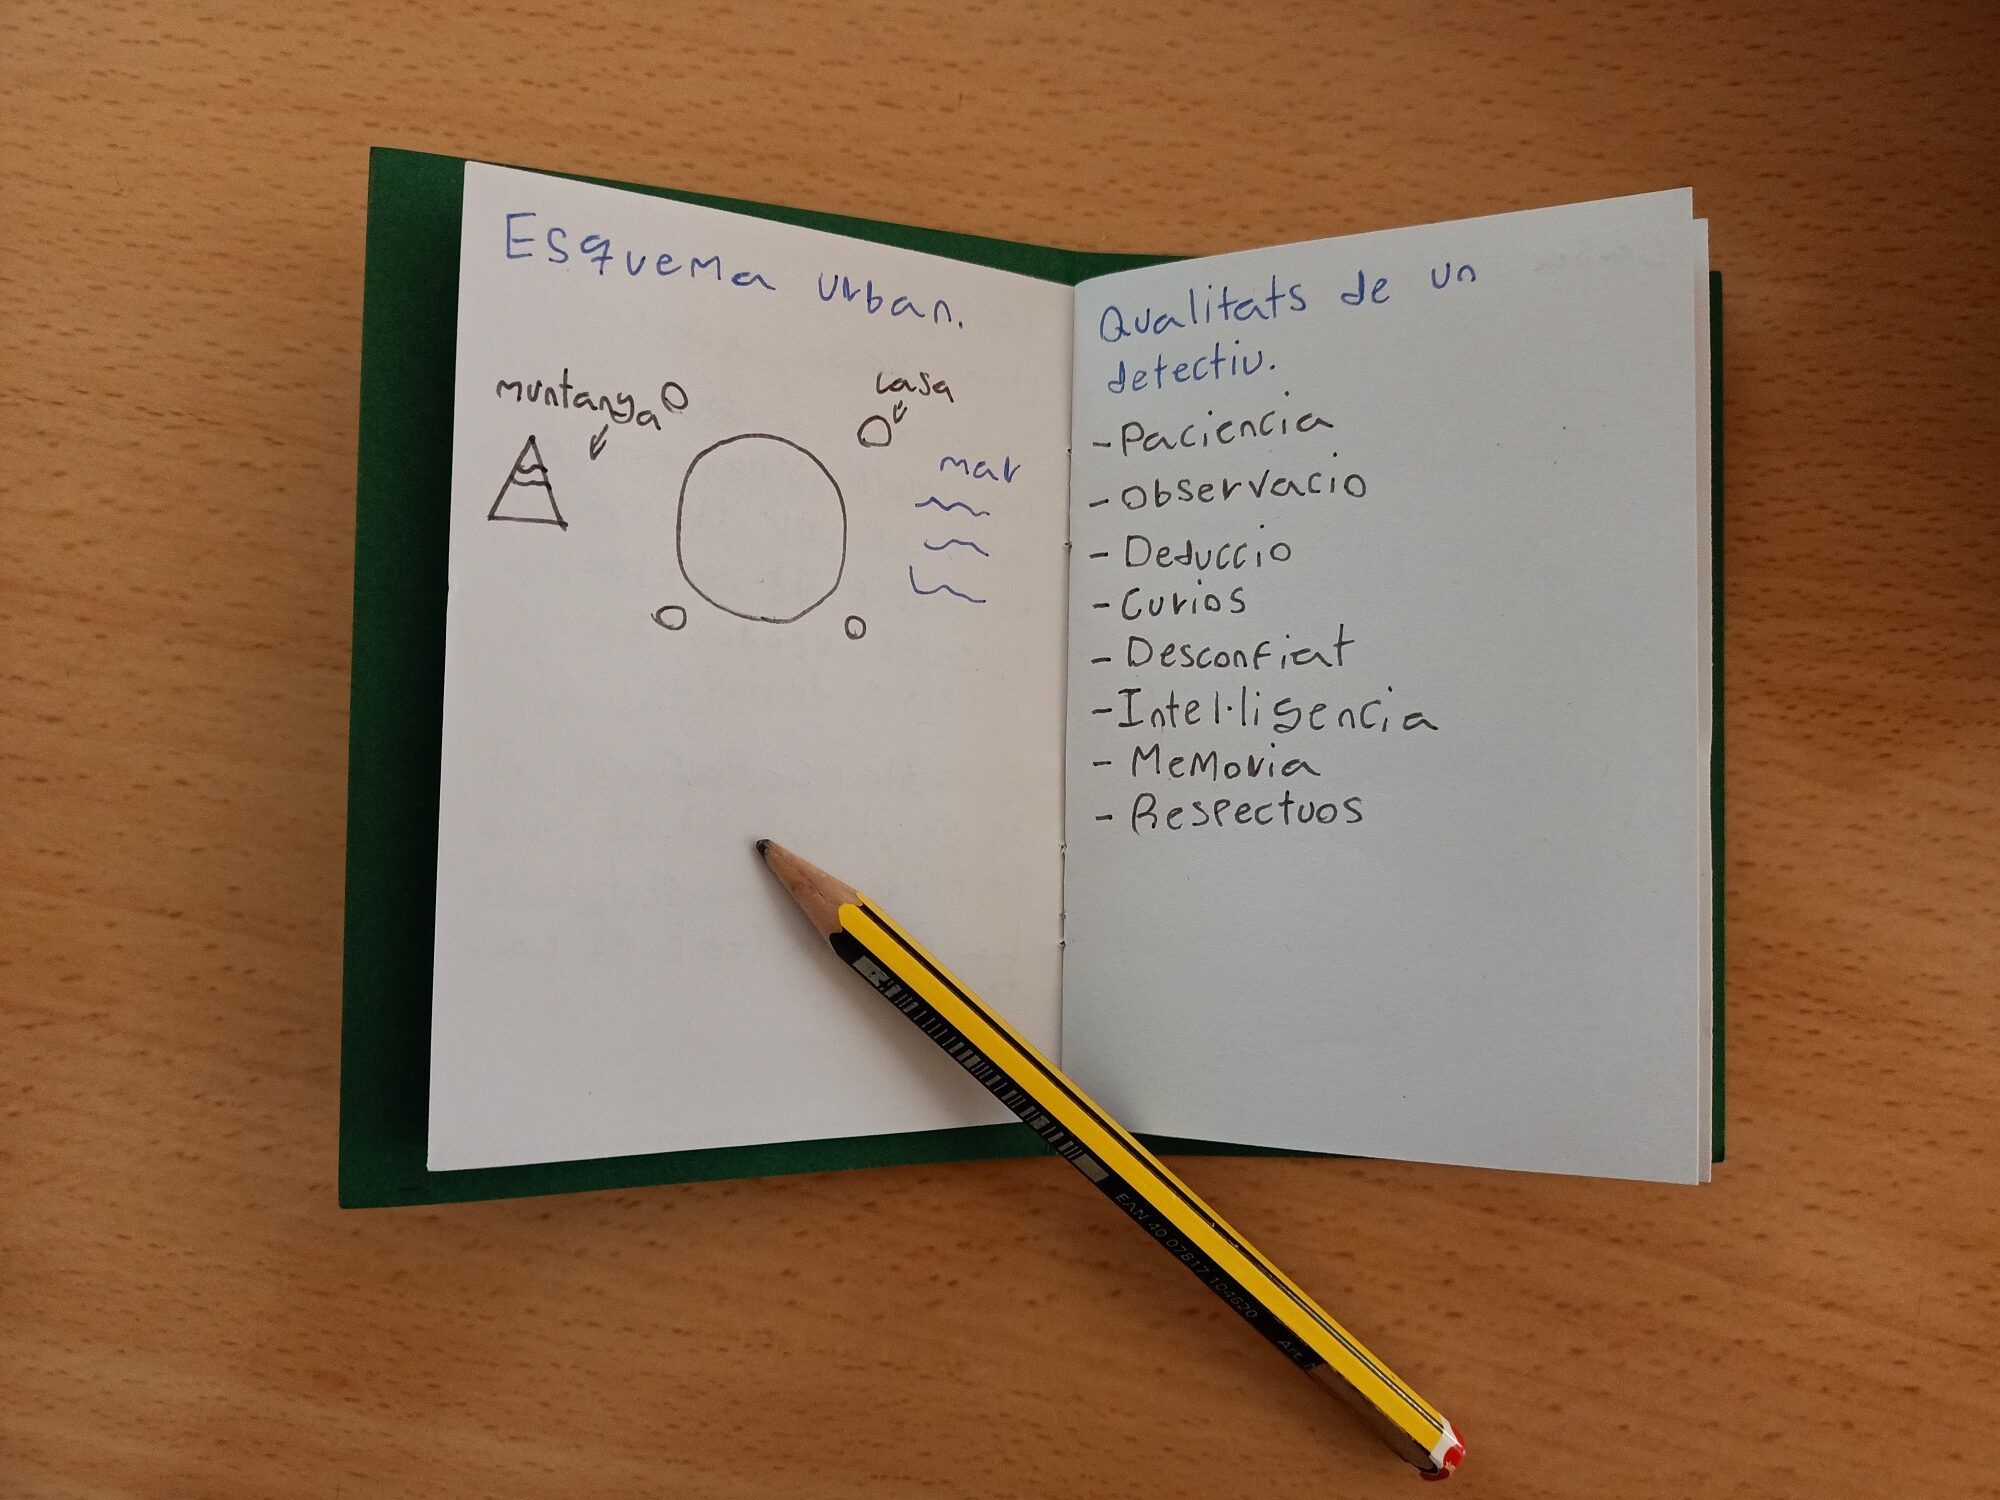 Esquema urban.
muntanya
casa
mar
Qualitats de un
detectiu.
- Paciencia
- Observacio
- Deduccio
- Curios
- Desconfiat
- Intel·ligencia
- Memoria
- Respectuos
EAN 40 07817 104620